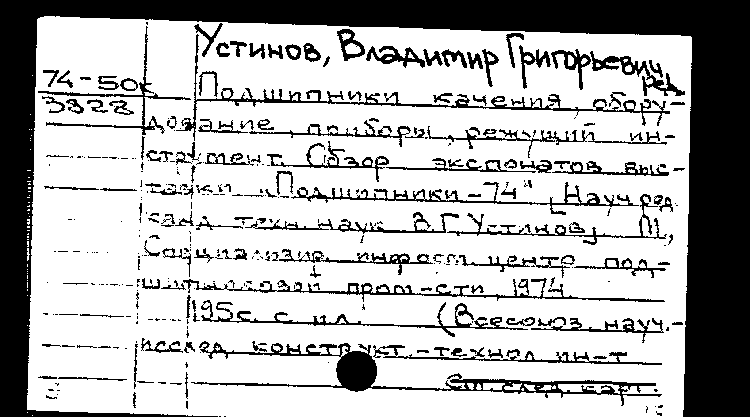 Устинов, Владимир Григорьевич, ред.
74-50к
3828
Подшипники качения, обору-
дование, приборы, режущий ин-
струмент. Обзор экспонатов выс-
тавки „Подшипники-74" [Науч. ред.
канд. техн. наук В.Г. Устинов]. М.,
Специализир. информ. центр под-
шипниковой пром-сти, 1974.
195с. с ил. (Всесоюз. науч.-
исслед. конструкт.-технол. ин-т
См. след. карт.